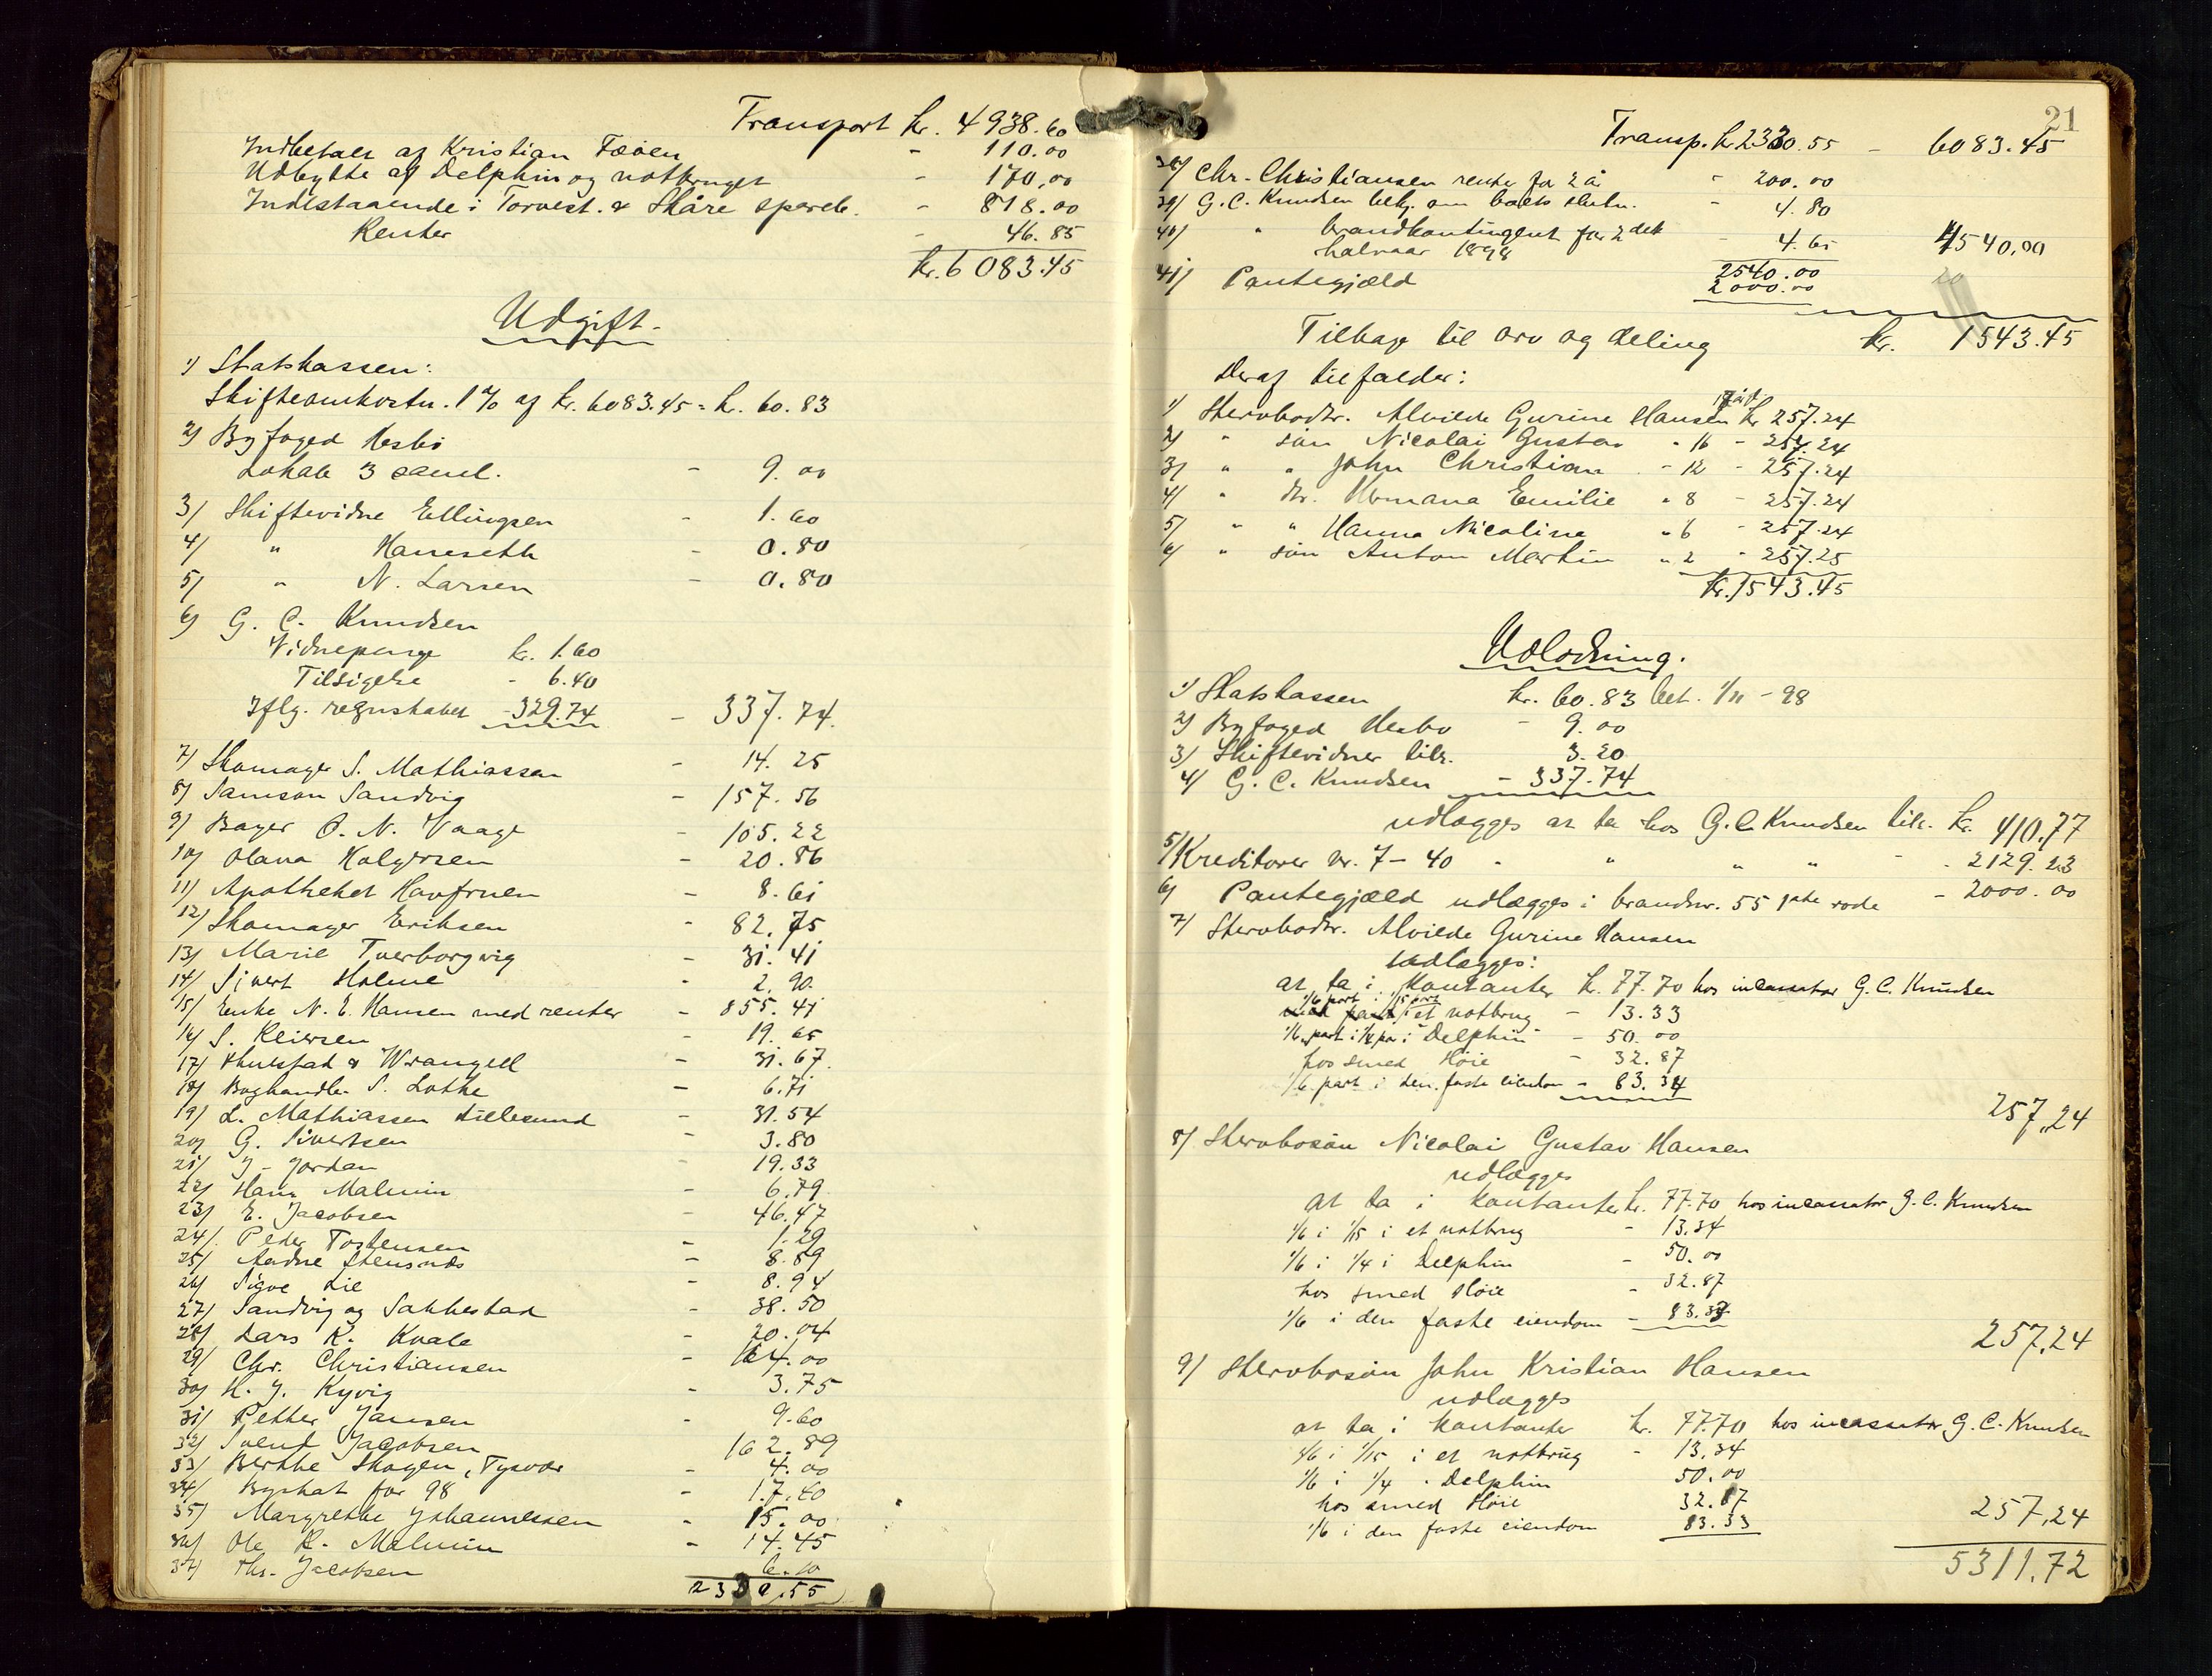 Transport kr. 4938.60
Indbetalt af Kristian Fæøen - 110.00
Udbytte af Delphin og notbruget - 170,00
Indestaaende i Torvest. & Skåre spareb. - 818.00
Renter - 46.85
kr. 6083.45
Udgift.
1) Statskassen:
Skifteomkostn. 1% af kr. 6083.45 = kr. 60.83
2) Byfoged Hesbø
Lokale 3 saml. - 9.00
3) Skiftevidne Ellingsen - 1.60
4) " Haneseth - 0.80
5) " N. Larsen - 0.80
6) G. C. Knudsen
Vidnepenge kr. 1.60
Tilsigelse - 6.40
Iflg. regnskabet - 329.74 - 337.74.
7) Skomager S. Mathiassen - 14.25
8) Samson Sandvig - 157.56
9) Bager O. N. Vaage - 105.22
10) Olava Holgersen - 20.86
11) Apotheket Havfruen - 8.61
12) Skomager Eriksen - 82.75
13) Marie Tverborgvig - 31.41
14) Sivert Holme - 2.90.
15) Enke N. E. Hansen med renter - 855.41
16) S. Reiersen - 19.65
17) & Wrangell - 31.67.
18) Boghandler S. Lothe - 6.71
19) L. Mathiassen Lillesund - 31.54
20) G. Sivertsen - 3.80
21) J. Jordan - 19.33
22) Hans Malmin - 6.79
23) E. Jacobsen - 46.47
24) Peder Tostensen - 1.29
25) Aadne Stensnæs - 8.89
26) Sigve Lie - 8.94
27) Sandvig og Sakkestad - 38.50
28) Lars K. Kvale - 20.04
29) Chr. Christiansen - 164.00
30) H. J. Kyvig - 3.75
31) Petter Jansen - 9.60
32) Svend Jacobsen 162.89
33) Berthe Skogen, Tysvær - 4.00
34) Byskat for 98 - 17.60
35) Margrethe Johannessen - 15.00
36) Ole K. Malmin - 14.45
37) Ths. Jacobsen 6.10
2330.55
21
Transp. kr 2330.55 - 6083.45
38) Chr. Christiansen renter for 2 år - 200.00
39) G. C. Knudsen bekj. om boets slutn. - 4.80
40) " brandkontingent for 2det
halvaar 1898 - 4.65 4540,00
2540.00
41) Pantegjæld 2000.00
20
Tilbage til arv og deling kr. 1543.45
Deraf tilfalder:
1) Stervbodtr. Alvilde Gurine Hansen 17 år kr 257.24
2) " søn Nicolai Gustav " 16 - 257.24
3) " " John Christian - 12 - 257.24
4) " dtr. Hermana Emilie " 8 - 257.24
5) " " Hanna Nicoline " 6 - 257.24
6) " søn Anton Martin " 2 - 257.25
Kr. 1543.45
Udlodning.
1) Statskassen kr. 60.83 bet. 1/11 - 98
2) Byfoged Hesbø - 9.00
3) Skiftevidner tils. 3.20
4) G. C. Knudsen - 337.74
udlægges at ta hos G. C. Knudsen tils. kr. 410,77
5) Kreditorer nr. 7 - 40 " " " " - 2129.23
6) Pantegjæld udlægges i brandnr. 55 1ste rode - 2000.00
7) Stervbodtr. Alvilde Gurine Hansen
udlægges:
at ta i kontanter kr. 77.70 hos incassator G. C. Knudsen
1/6 part i 1/15 part i et notbrug - 13.33
1/6 part i 1/4 pa i Delphin - 50.00
hos smed Høie - 32.87
1/6 part i den faste eiendom - 83.34
257,24
8) Stervbosøn Nicolai Gustav Hansen
udlægges
at ta i kontanter kr. 77.70 hos incassator G. C. Knudsen
1/6 i 1/15 i et notbrug - 13.34
1/6 i 1/4 i Delphin - 50.00
hos smed Høie - 32.87
1/6 i den faste eiendom - 83.33
257,24
9) Stervbosøn John Kristian Hansen
udlægges
at ta i kontanter kr. 77.70 hos incassator G. C. Knudsen
1/6 i 1/15 i et notbrug - 13.34
1/6 i 1/4 " Delphin 50.00
hos smed Høie 32.87
1/6 i den faste eiendom 83.33
257,24
5311.72